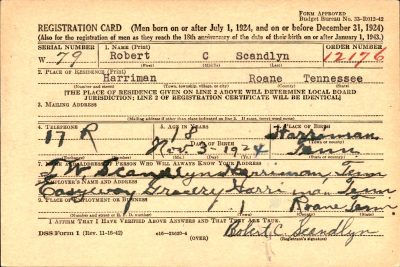 FORM APPROVED
Budget Bureau No. 33-R012-42
REGISTRATION CARD (Men born on or after July 1, 1924, and on or before December 31, 1924)
(Also for the registration of men as they reach the 18th anniversary of the date of their birth on or after January 1, 1943.)
SERIAL NUMBER 1. NAME (Print) ORDER NUMBER
W 79 Robert C Scandlyn 12176
2. PLACE OF RESIDENCE (Print)
Harriman Roane Tennessee
(Number and street) (Town, township, village, or city) (County) (State)
[THE PLACE OF RESIDENCE GIVEN ON LINE 2 ABOVE WILL DETERMINE LOCAL BOARD
JURISDICTION; LINE 2 OF REGISTRATION CERTIFICATE WILL BE IDENTICAL]
3. MAILING ADDRESS
(Mailing address if other than place indicated on line 2. If same, insert word same)
4. TELEPHONE 5. AGE IN YEARS 6. PLACE OF BIRTH
17 R 18 Harriman
DATE OF BIRTH
Nov. 3 1924 Tenn
7. NAME AND ADDRESS OF PERSON WHO WILL ALWAYS KNOW YOUR ADDRESS
Scandlyn Harriman, Tenn
8. EMPLOYER'S NAME AND ADDRESS
Grocery Harriman Tenn
9. PLACE OF EMPLOYMENT OR BUSINESS
Roane Tenn
(Number and street or R. F. D. number) (Town) (County) (State)
I AFFIRM THAT I HAVE VERIFIED ABOVE ANSWERS AND THAT THEY ARE TRUE.
DSS Form 1 (Rev. 11-16-42) (OVER) Robert C. Scandlyn
(Registrant's signature)